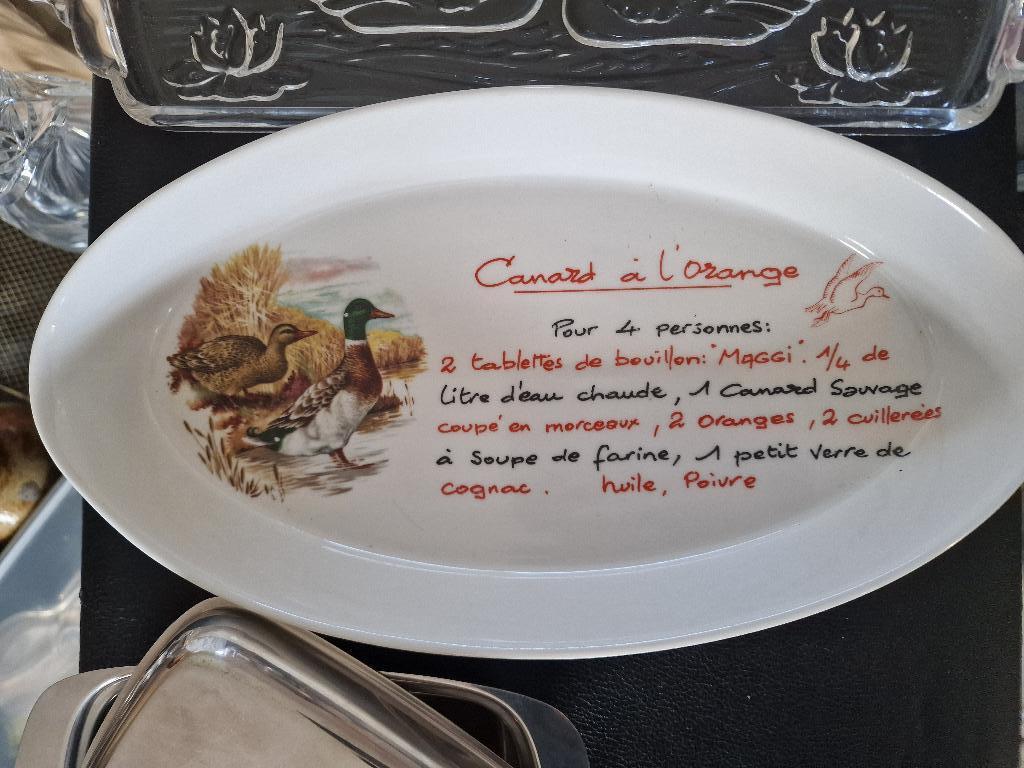 Canard à l'Orange
Pour 4 personnes:
2 tablettes de bouillon: "MAGGI". 1/4 de
Litre d'eau chaude, 1 Canard Sauvage
coupé en morceaux, 2 Oranges, 2 cuillerées
à Soupe de farine, 1 petit Verre de
cognac. huile, Poivre